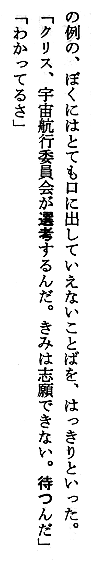 の例の、ぼくにはとても口に出していえないことばを、はっきりといった。
「クリス、宇宙航行委員会が選考するんだ。きみは志願できない。待つんだ」
「わかってるさ」